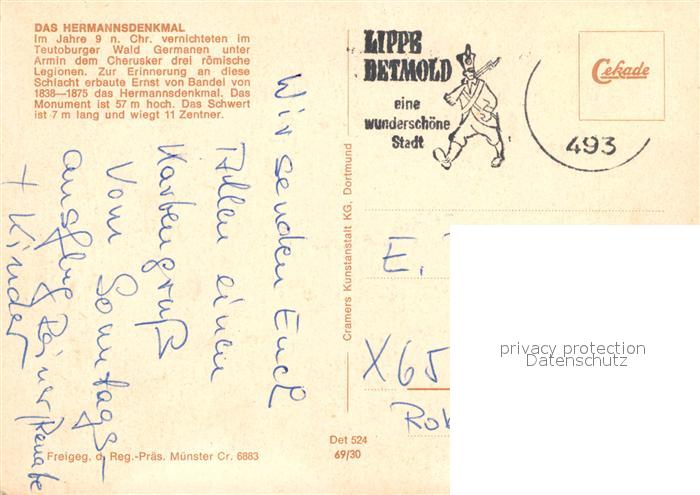 DAS HERMANNSDENKMAL
Im Jahre 9 n. Chr. vernichteten im
Teutoburger Wald Germanen unter
Armin dem Cherusker drei römische
Legionen. Zur Erinnerung an diese
Schlacht erbaute Ernst von Bandel von
1838—1875 das Hermannsdenkmal. Das
Monument ist 57 m hoch. Das Schwert
ist 7 m lang und wiegt 11 Zentner.
Wir senden Euch
Allen einen
Kartengruß
vom Sonntags-
ausflug Reiner/Renate
+ Kinder
Freigeg. d. Reg.-Präs. Münster Cr. 6883
Cramers Kunstanstalt KG, Dortmund
Det 524
69/30
LIPPE
DETMOLD
eine
wunderschöne
Stadt
493
Cekade
E.
X65
privacy protection
Datenschutz